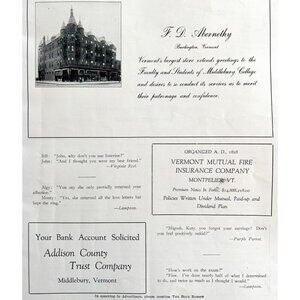 F. D. Abernethy
Burlington, Vermont
Vermont's largest store extends greetings to the
Faculty and Students of Middlebury College
and desires to so conduct its services as to merit
their patronage and confidence.
Bill: "John, why don't you use listerine?"
John: "And I thought you were my best friend."
—Virginia Reel.
"Yes my she only partially returned your
affection?"
Monty: "Yes, she returned all the love letters but
kept the ring."
—Lampoon.
Your Bank Account Solicited
Addison County
Trust Company
Middlebury, Vermont
ORGANIZED A. D., 1828
VERMONT MUTUAL FIRE
INSURANCE COMPANY
MONTPELIER, VT.
Premium Notes in Force,
Policies Written Under Mutual, Paid-up and
Dividend Plan
"Migosh, Katy, you forgot your carriage! Don't
you feel positively nakid?"
—Purple Parrot.
"How's work on the exam?"
"Fine. I've done nearly half of what I determined
to do, and twice as much as I thought I would."
—Lampoon.
In speaking to Advertisers, please mention The Blue Baboon